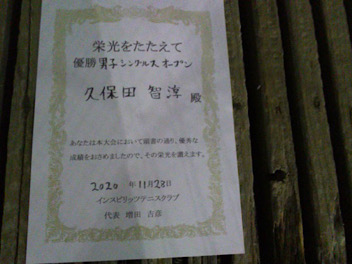 栄光をたたえて
優勝 男子シングルス オープン
久保田 智淳 殿
あなたは本大会において頭書の通り、優秀な
成績をおさめましたので、その栄光を讃えます。
2020 年 11月 23日
インスピリッツテニスクラブ
代表 増田 吉彦